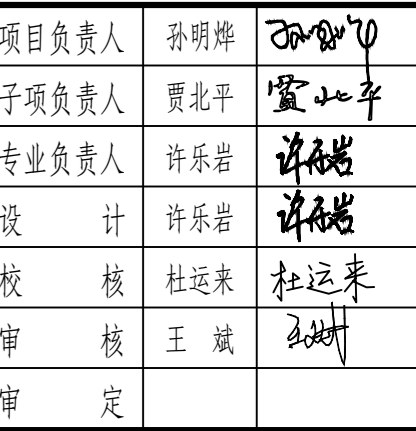 项目负责人 孙明烨 孙明烨
子项负责人 贾北平 贾北平
专业负责人 许乐岩 许乐岩
设 计 许乐岩 许乐岩
校 核 杜运来 杜运来
审 核 王 斌 王斌
审 定